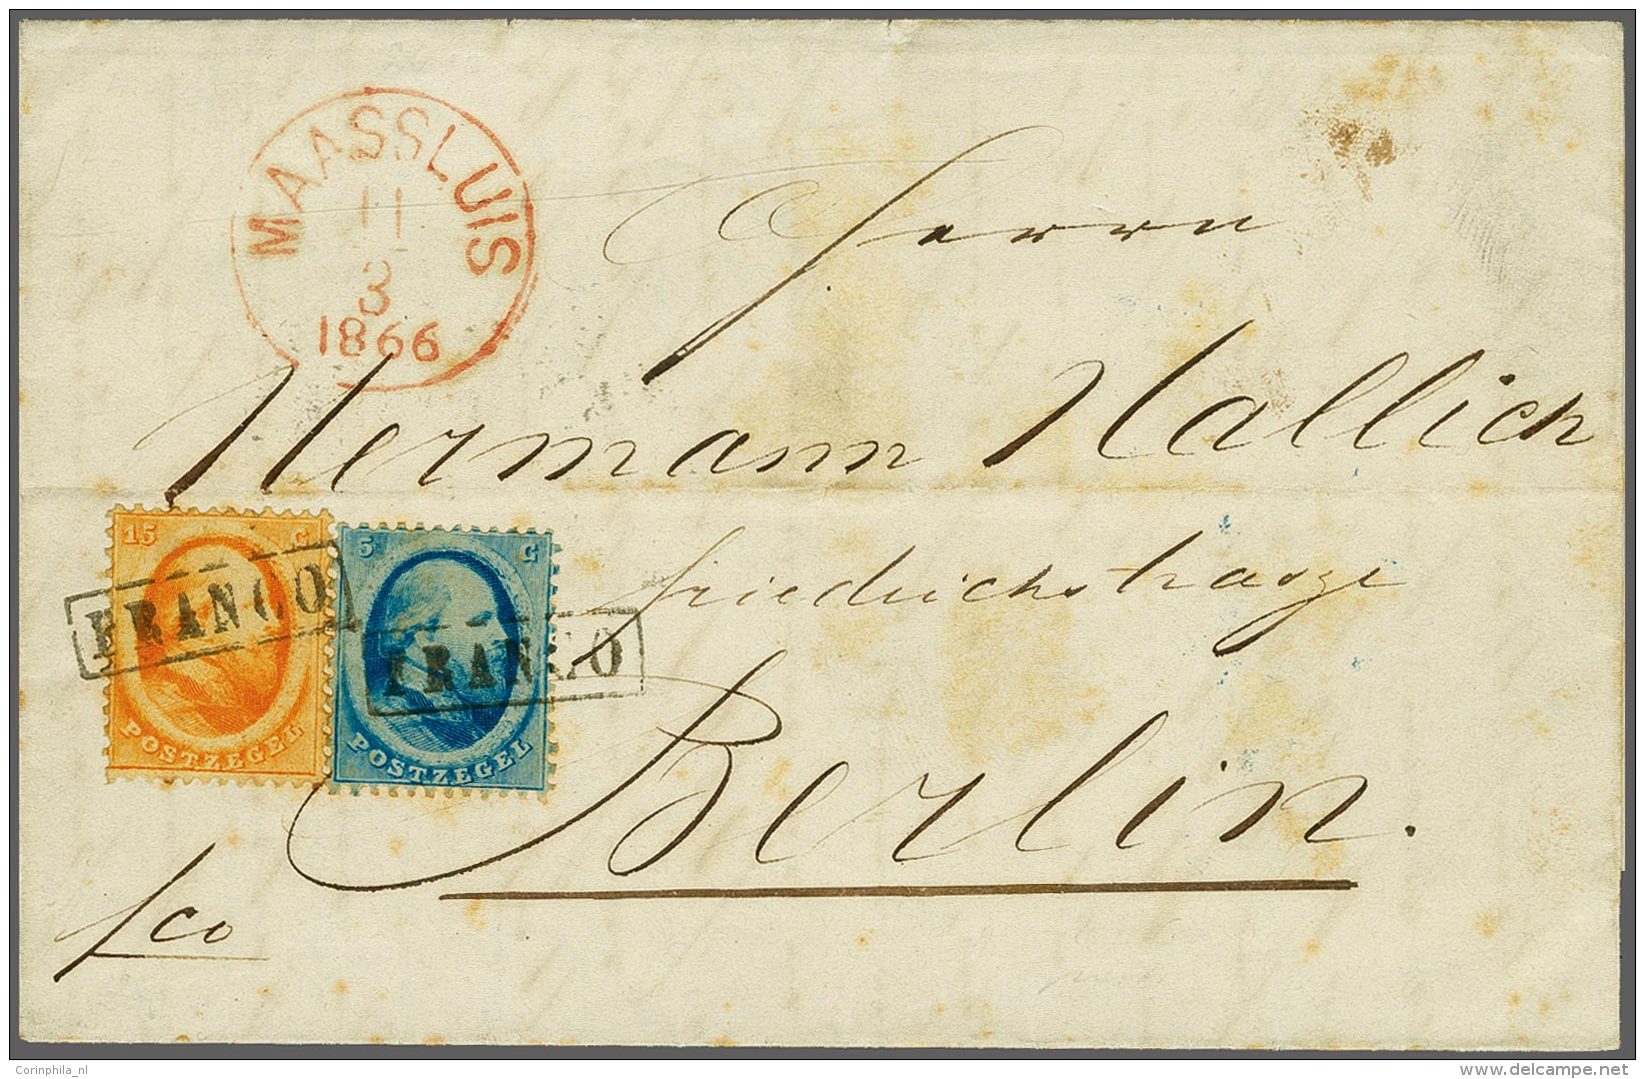 MAASSLUIS
11
3
1866
Herrn
Hermann Hallich
15 C
5 C
FRANCO
FRANCO
POSTZEGEL
POSTZEGEL
Berlin.
fco
Corinphila_nl
delcampe.net